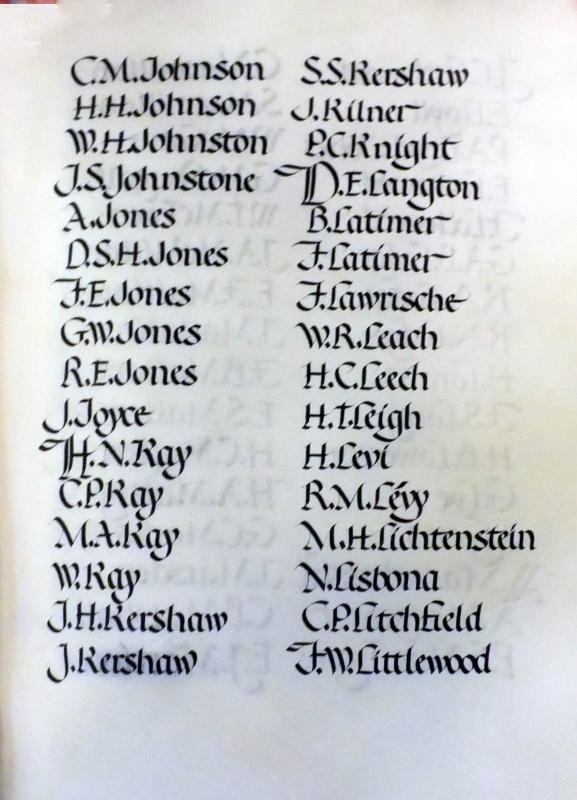 C.M.Johnson
H.H.Johnson
W.H.Johnston
J.S.Johnstone
A.Jones
D.S.H.Jones
F.E.Jones
G.W.Jones
R.E.Jones
J.Joyce
H.N.Kay
C.P.Kay
M.A.Kay
W.Kay
J.H.Kershaw
J.Kershaw
S.S.Kershaw
J.Kilner
P.C.Knight
D.E.Langton
B.Latimer
F.Latimer
F.Lawrische
W.R.Leach
H.C.Leech
H.T.Leigh
H.Levi
R.M.Lévy
M.H.Lichtenstein
N.Lisbona
C.P.Litchfield
F.W.Littlewood